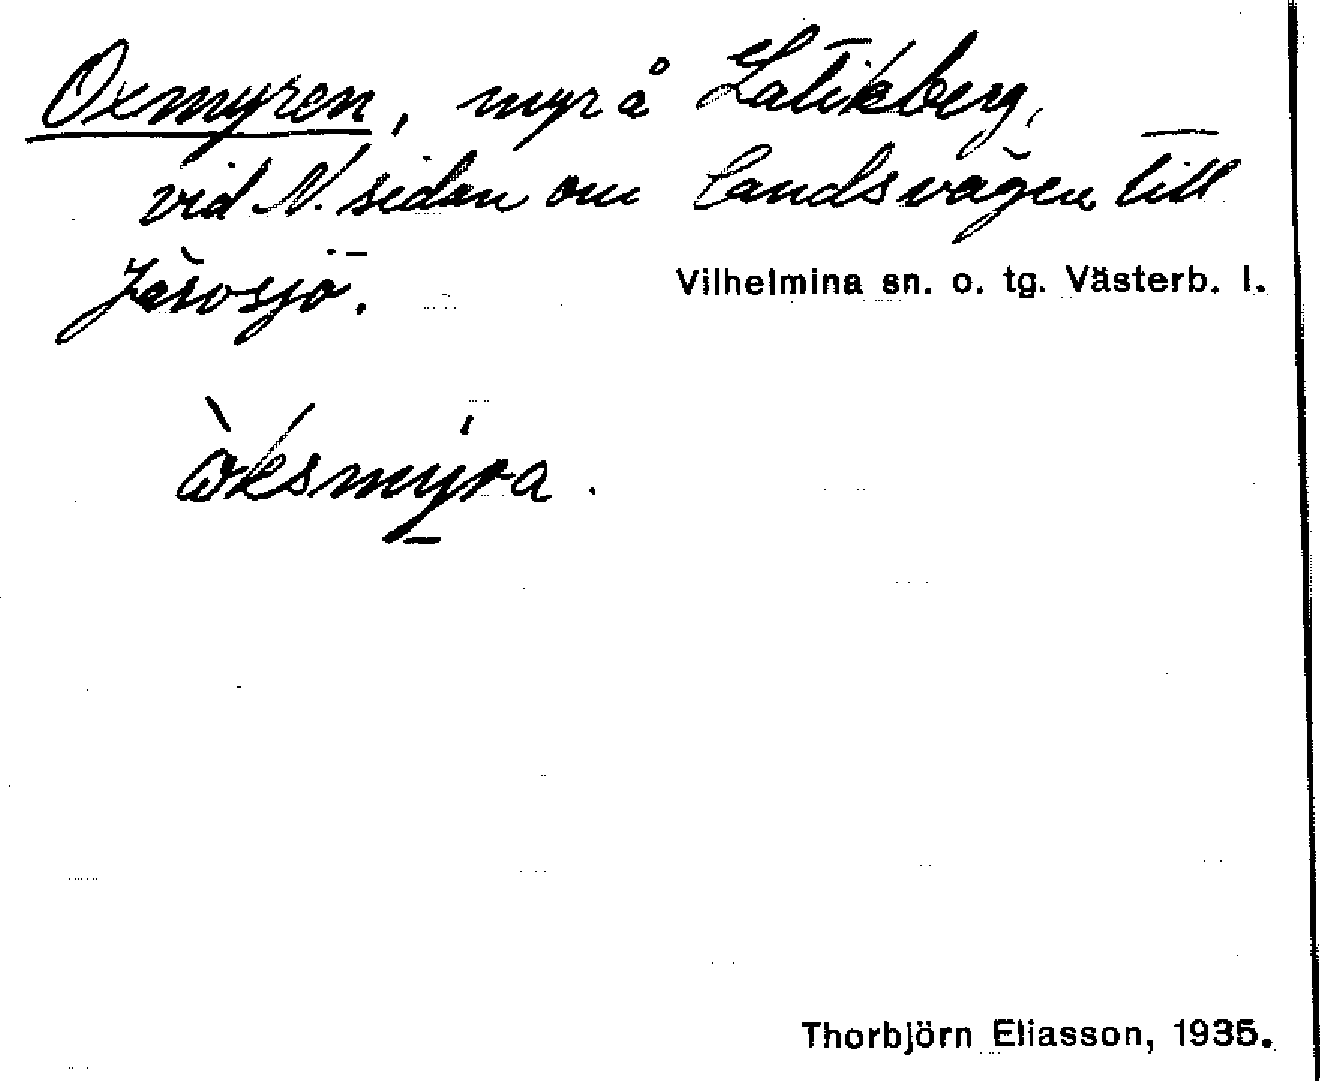 Oxmyren, myr å Latikberg,
vid N. sidan om landsvägen till
Järvsjö.
Vilhelmina sn. o. tg. Västerb. l.
òksmýra.
Thorbjörn Eliasson, 1935.